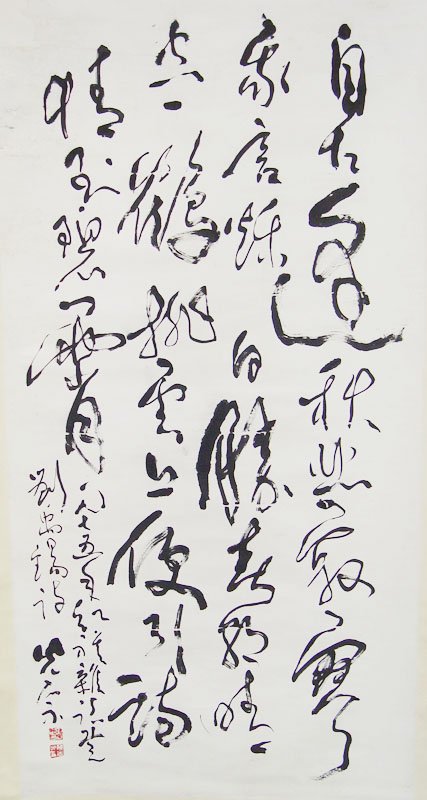 自古逢秋悲寂寥
我言秋日勝春朝晴
空一鶴排雲上便引詩
情到碧霄
一九七五年
劉禹錫詩